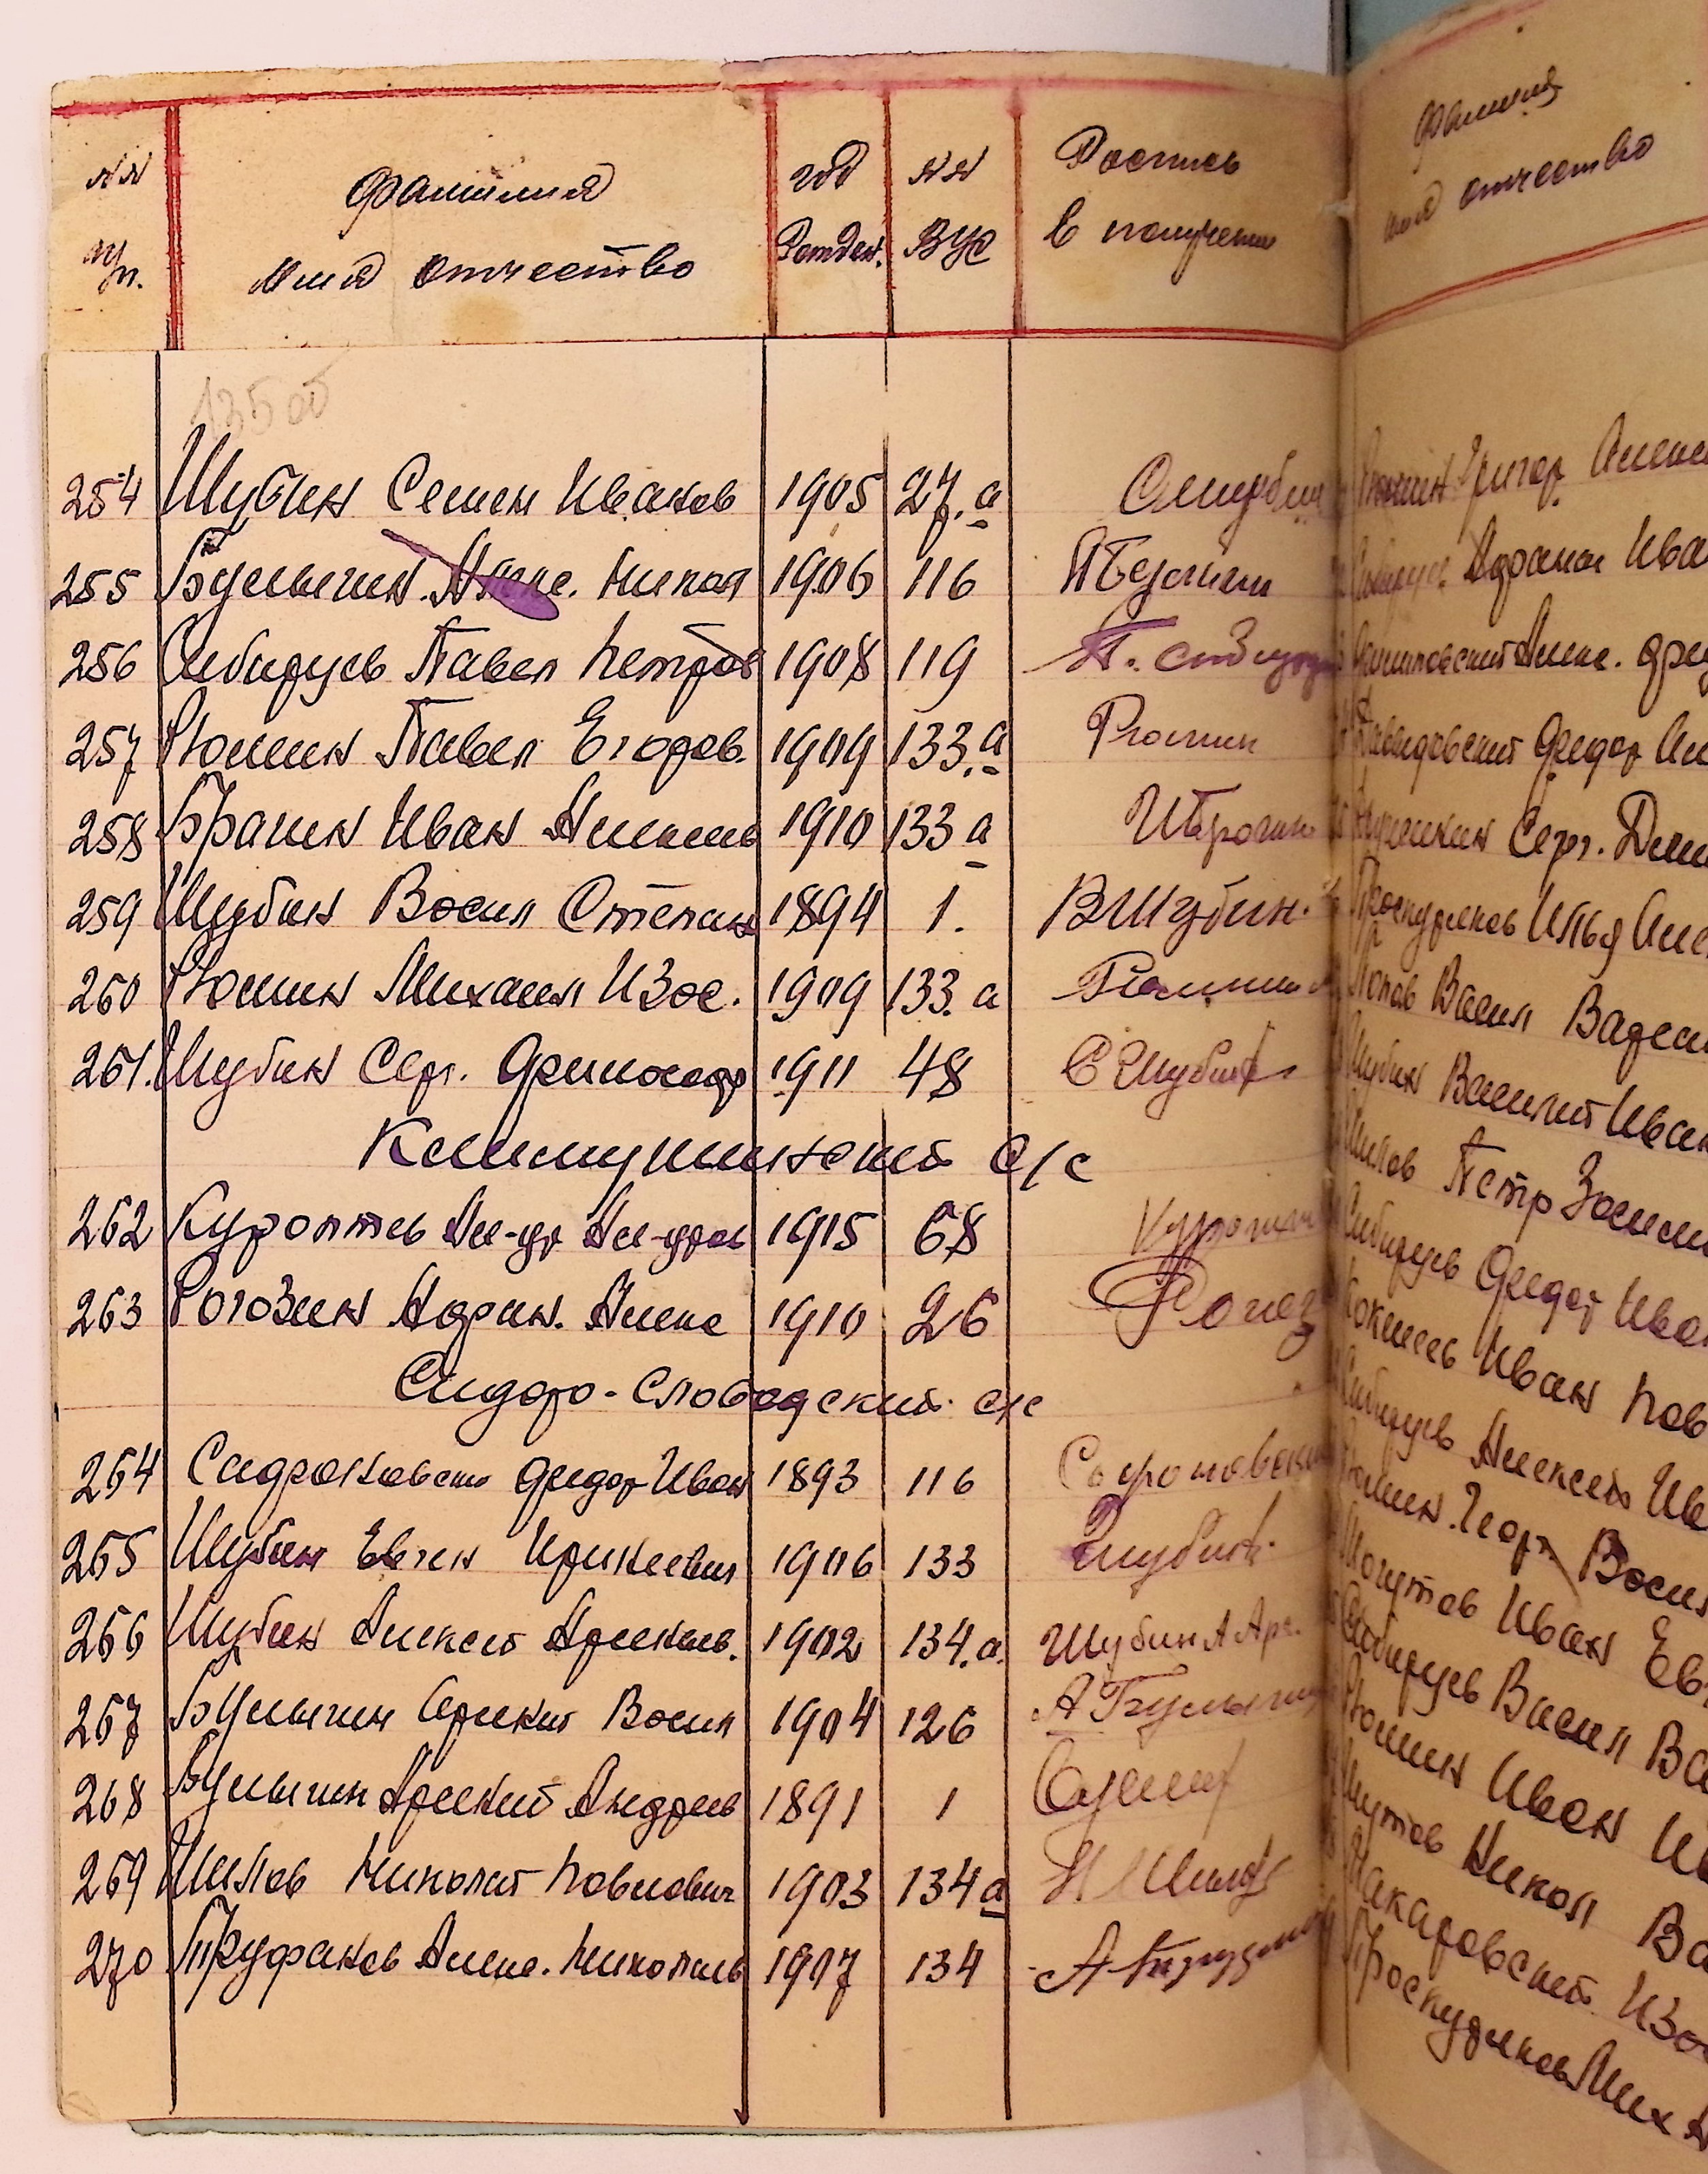 №№ п/п. Фамилия имя отчество год Рожден. №№ ВУС Роспись в получении
13500
254 Шубин Семен Иванов 1905 27.а
255 Булыгин Алекс. Никол 1906 116
256 Сибирцев Павел Петров 1908 119 П. Сибирцев
257 Рюмин Павел Егоров. 1909 133.а Рюмин
258 Брагин Иван Алексеев 1910 133 а ИБрагин
259 Шубин Васил Степан 1894 1. ВШубин.
260 Рюмин Михаил Изос. 1909 133. а
261. Шубин Серг. Финогед 1911 48 СШубин
Климушинский с/с
262 Куроптев Ал-др Ал-дров 1915 68
263 Рогозин Адриан. Алекс 1910 26 Рогоз
Сидоро-Слободский с/с
264 Сафоновский Федор Иван 1893 116
265 Шубин Евген Иринеевич 1906 133 Шубин.
266 Шубин Алексей Арсеньев. 1902 134.а. Шубин А Арс.
267 Булыгин Аркий Васил 1904 126 А Булыгин
268 Булыгин Арсений Андреев 1891 1
269 Шилов Николай Павлович 1903 134 а Н Шилов
270 Труфанов Алекс. Николаев 1907 134
Фамилия
имя отчество
Рюмин Григор Алекс
Адриан Ива
Алекс. Фед
Федор Ал
Серг. Дми
Проскуряков Илья Але
Попов Васил Васил
Шубин Василий Иван
Шилов Петр Зосим
Сибирцев Федор Иван
Кокшеев Иван Пав
Сибирцев Алексей Ив
Рюмин Геор Васил
Могутов Иван Ев
Сибирцев Васил Ва
Рюмин Иван Ив
Шутов Никол Ва
Макаровский Изо
Проскуряков Мих А